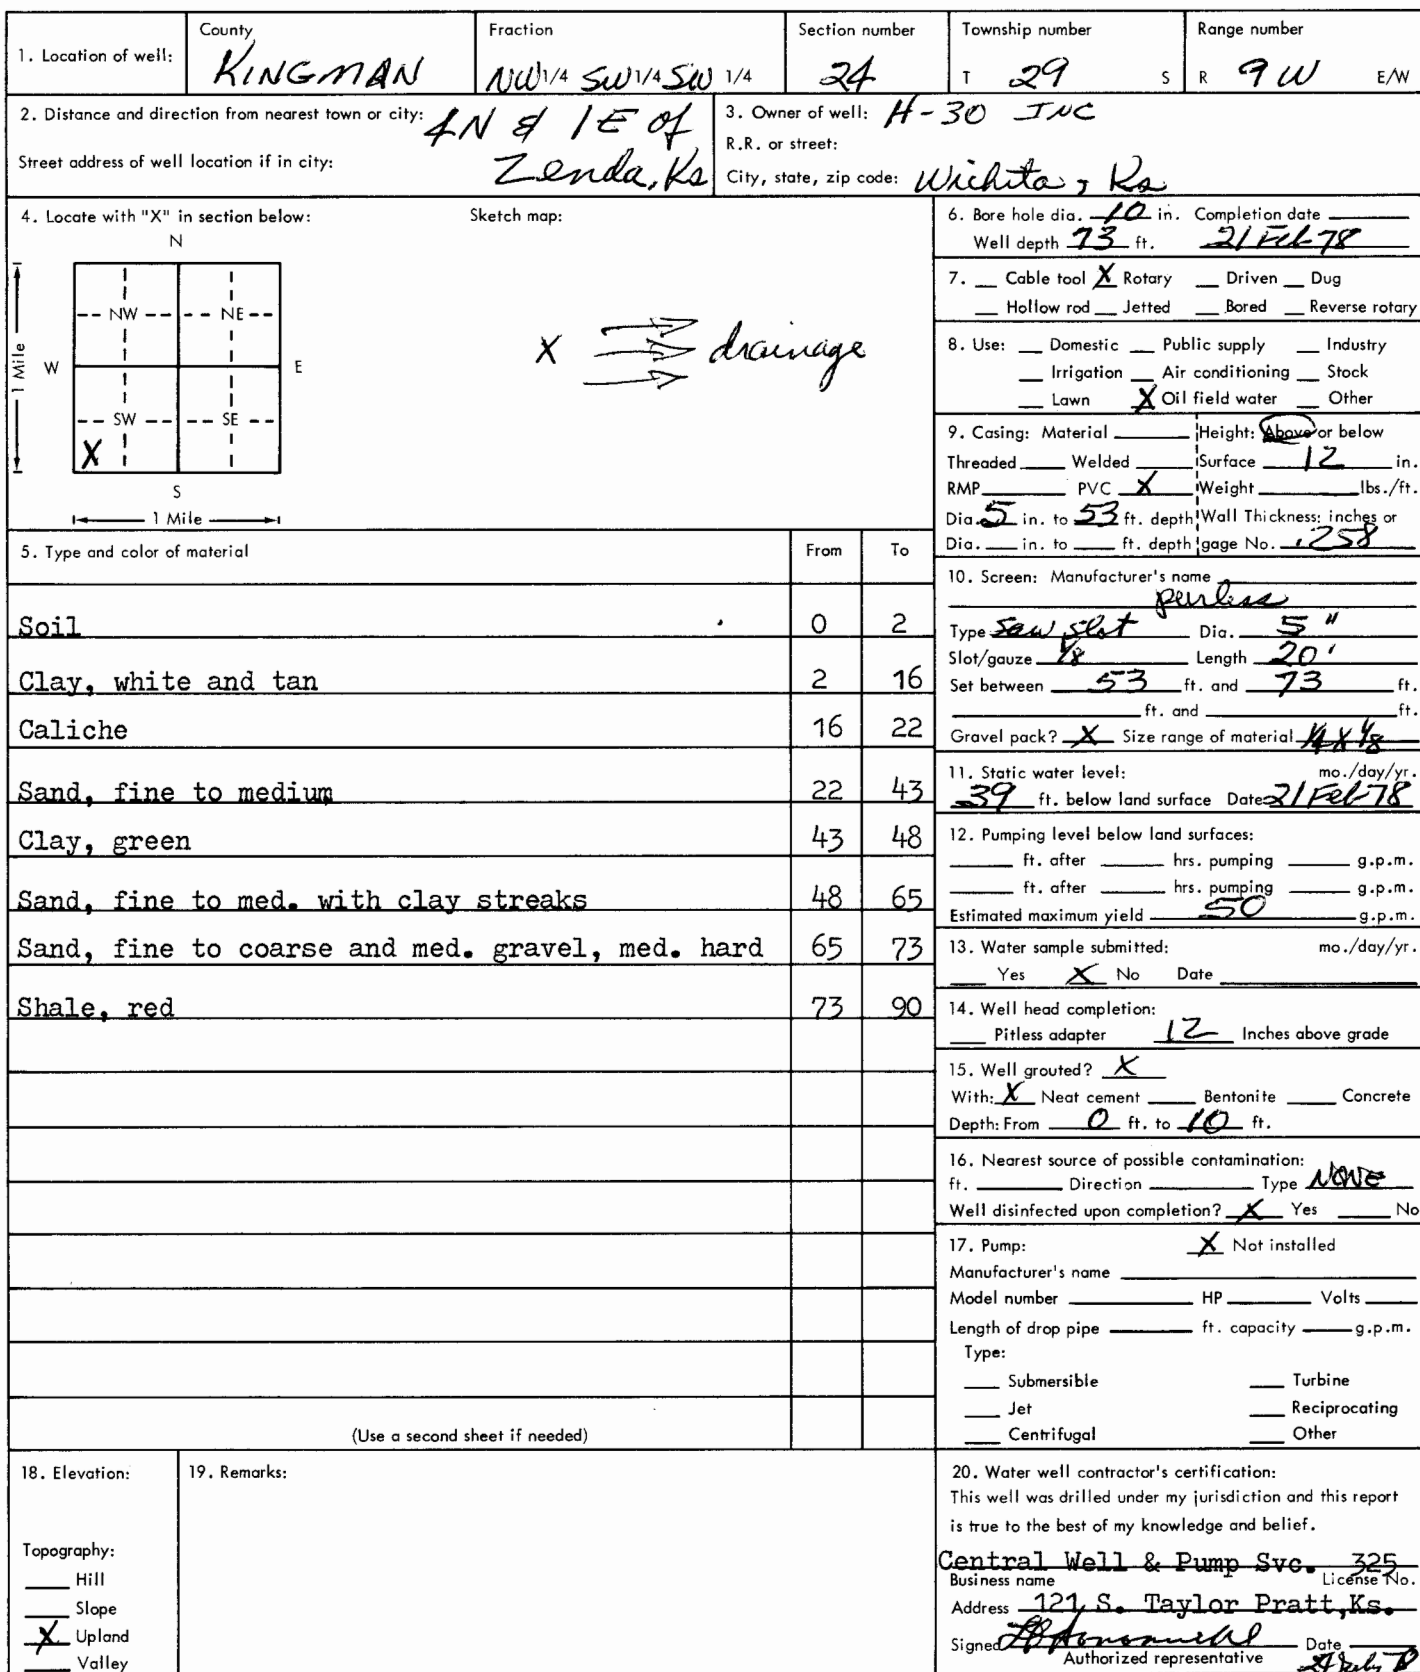 1. Location of well:
County
KINGMAN
Fraction
NW 1/4 SW 1/4 SW 1/4
Section number
24
Township number
T 29 S
Range number
R 9W E/W
2. Distance and direction from nearest town or city: 4N & 1E of
Street address of well location if in city: Zenda, Ks
3. Owner of well: H-30 INC
R.R. or street:
City, state, zip code: Wichita, Ks
4. Locate with "X" in section below:
Sketch map:
N
NW NE
1 Mile
W E
SW SE
X
S
1 Mile
X drainage
5. Type and color of material From To
Soil 0 2
Clay, white and tan 2 16
Caliche 16 22
Sand, fine to medium 22 43
Clay, green 43 48
Sand, fine to med. with clay streaks 48 65
Sand, fine to coarse and med. gravel, med. hard 65 73
Shale, red 73 90
(Use a second sheet if needed)
6. Bore hole dia. 10 in. Completion date
Well depth 73 ft. 21 Feb 78
7. Cable tool X Rotary Driven Dug
Hollow rod Jetted Bored Reverse rotary
8. Use: Domestic Public supply Industry
Irrigation Air conditioning Stock
Lawn X Oil field water Other
9. Casing: Material Height: Above or below
Threaded Welded Surface 12 in.
RMP PVC X Weight lbs./ft.
Dia. 5 in. to 53 ft. depth Wall Thickness: inches or
Dia. in. to ft. depth gage No. .258
10. Screen: Manufacturer's name
peerless
Type Saw slot Dia. 5"
Slot/gauze 1/8 Length 20'
Set between 53 ft. and 73 ft.
ft. and ft.
Gravel pack? X Size range of material 1/4 x 1/8
11. Static water level: mo./day/yr.
39 ft. below land surface Date 21 Feb 78
12. Pumping level below land surfaces:
ft. after hrs. pumping g.p.m.
ft. after hrs. pumping g.p.m.
Estimated maximum yield 50 g.p.m.
13. Water sample submitted: mo./day/yr.
Yes X No Date
14. Well head completion:
Pitless adapter 12 Inches above grade
15. Well grouted? X
With: X Neat cement Bentonite Concrete
Depth: From 0 ft. to 10 ft.
16. Nearest source of possible contamination:
ft. Direction Type NONE
Well disinfected upon completion? X Yes No
17. Pump: X Not installed
Manufacturer's name
Model number HP Volts
Length of drop pipe ft. capacity g.p.m.
Type:
Submersible Turbine
Jet Reciprocating
Centrifugal Other
18. Elevation:
Topography:
Hill
Slope
X Upland
Valley
19. Remarks:
20. Water well contractor's certification:
This well was drilled under my jurisdiction and this report
is true to the best of my knowledge and belief.
Central Well & Pump Svc. 325
Business name License No.
Address 121 S. Taylor Pratt,Ks.
Signed Date
Authorized representative